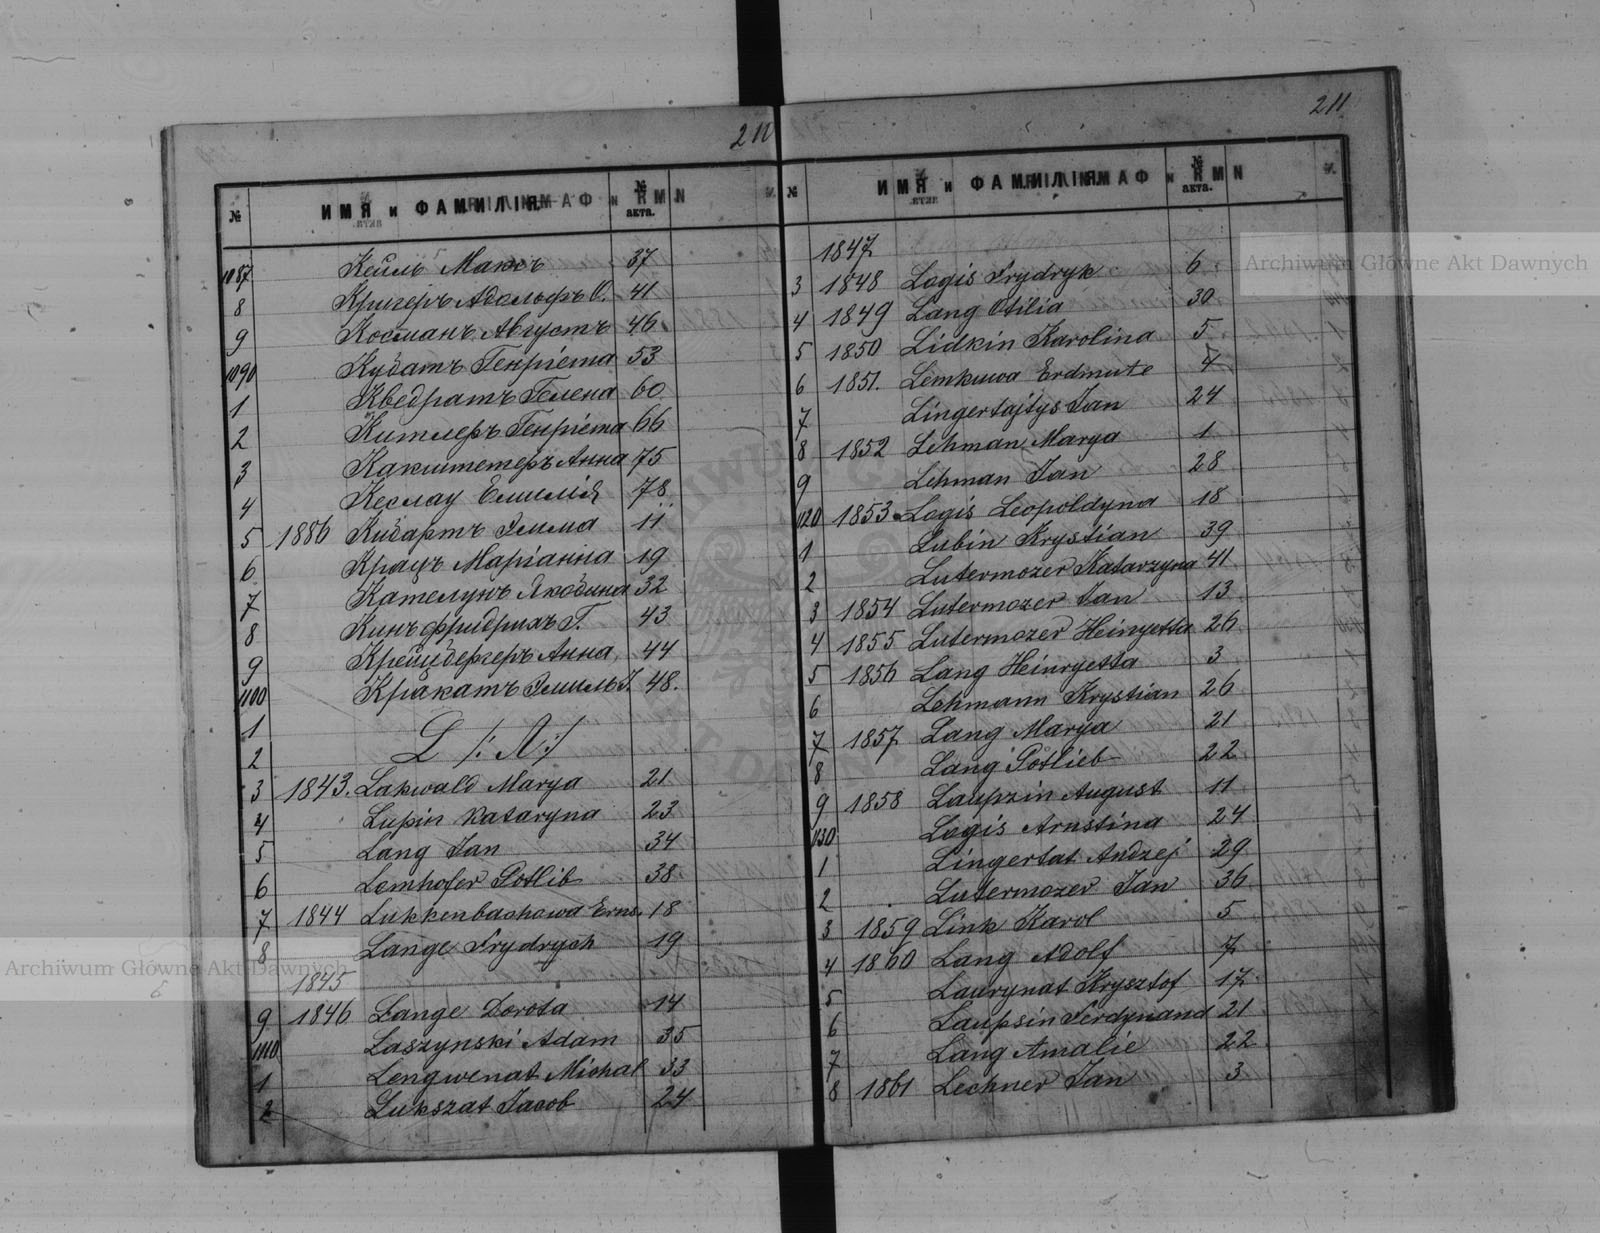 211
№ ИМЯ и ФАМИЛІЯ. № акта.
1087 Кейль Максъ 37
8 Кригеръ Адольфъ О. 41
9 Косманъ Августъ 46
1090 Кубатъ Генріета 53
1 Кведратъ Гелена 60
2 Китлеръ Генріета 66
3 Какшtетеръ Анна 75
4 Кеслау Емилія 78
5 1886 Кибартъ Эмма 11
6 Крацъ Маріанна 19
7 Кателунъ Якобина 32
8 Кинъ Фридрихъ Г. 43
9 Крейцбергеръ Анна 44
1100 Кракатъ Эмиль 48.
1
2 L /: Л :/
3 1843. Lakwald Marya 21
4 Lupin Kataryna 23
5 Lang Jan 34
6 Lemhofer Gotlib 38
7 1844 Lukkenbachowa Erns. 18
8 Lange Frydrych 19
1845
9 1846 Lange Dorota 14
1110 Łaszynski Adam 35
1 Lengwenat Michał 33
2 Lukszat Jacob 24
211
№ ИМЯ и ФАМИЛІЯ. № акта.
1847
3 1848 Logis Frydryk 6
4 1849 Lang Otilia 30
5 1850 Lidkin Karolina 5
6 1851. Lemkuwa Erdmute 4
7 Lingertajtys Jan 24
8 1852 Lehman Marya 1
9 Lehman Jan 28
1120 1853 Logis Leopoldyna 18
1 Lubin Krystian 39
2 Lutermozer Katarzyna 41
3 1854 Lutermozer Jan 13
4 1855 Lutermozer Heinyetta 26
5 1856 Lang Heinryetta 3
6 Lehmann Krystian 26
7 1857 Lang Marya 21
8 Lang Gotlieb 22
9 1858 Laupzin August 11
1130 Logis Arnstina 24
1 Lingertat Andzej 29
2 Lutermozer Jan 36
3 1859 Link Karol 5
4 1860 Lang Adolf 7
5 Laurynat Krysztof 17
6 Laupsin Ferdynand 21
7 Lang Amalie 22
8 1861 Lechner Jan 3
Archiwum Główne Akt Dawnych
Archiwum Główne Akt Dawnych